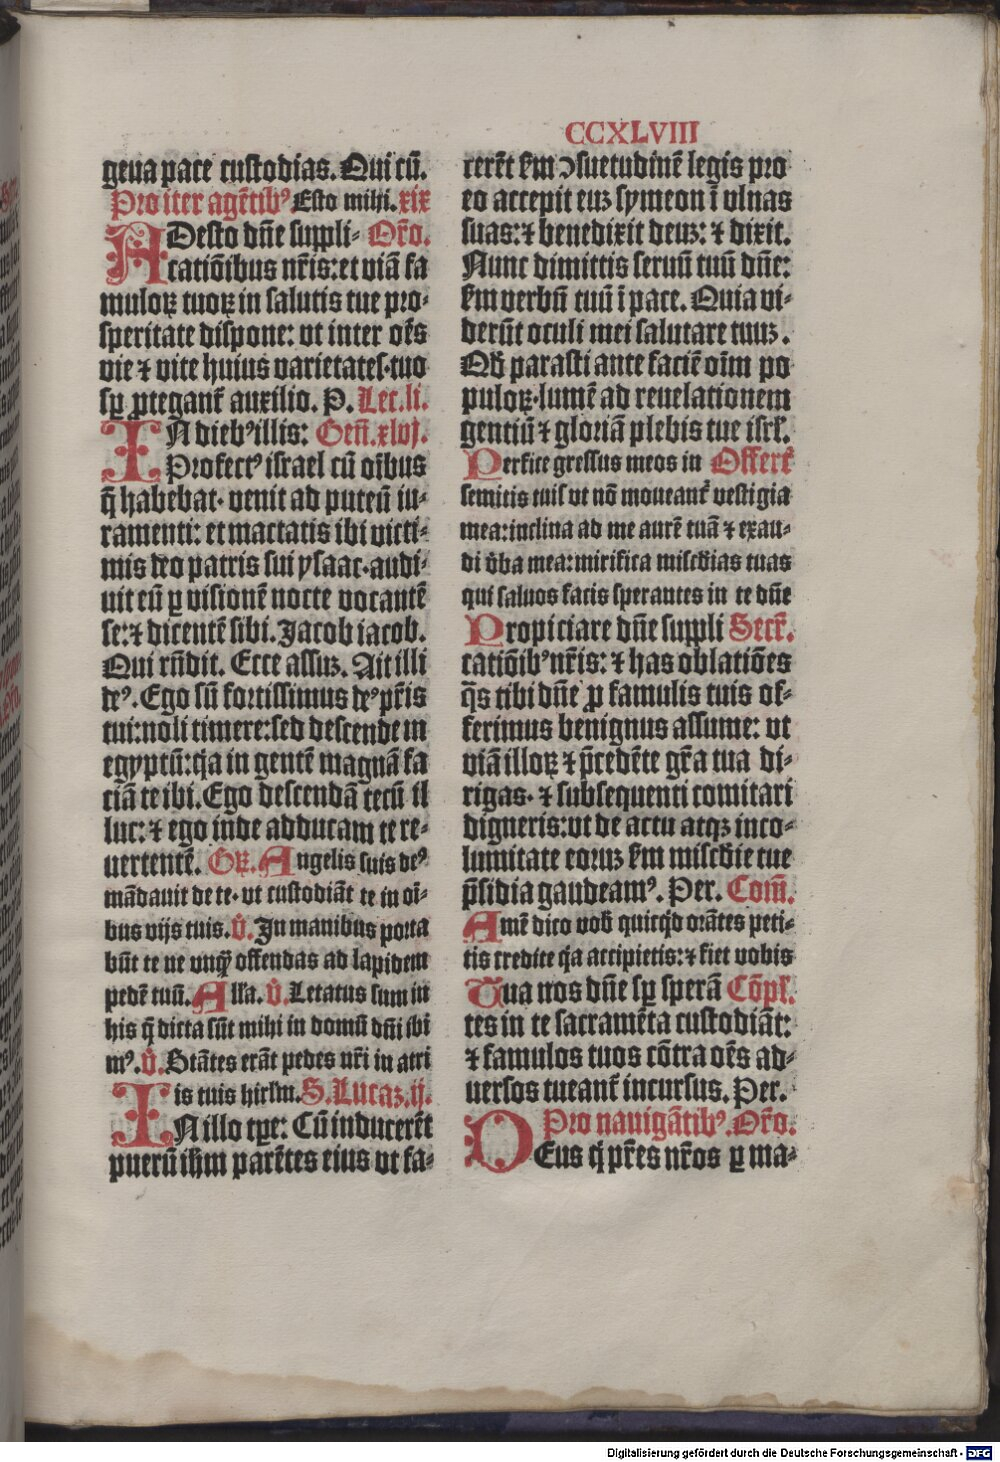 CCXLVIII
geua pace custodias. Qui cū.
Pro iter agētibꝰ Esto mihi. xix
ADesto dn̄e suppli- Or̄o.
catiōibus nr̄is: et viā fa
mulorꝝ tuorꝝ in salutis tue pro-
speritate dispone: vt inter oēs
vie ⁊ vite huius varietates. tuo
sꝑ ꝓtegant᷑ auxilio. P. Lec. li.
IN diebꝰ illis: Gen̄. xlvj.
Profectꝰ israel cū oībus
q̄ habebat. venit ad puteū iu-
ramenti: et mactatis ibi victi-
mis deo patris sui ysaac. audi-
uit eū ꝑ visionē nocte vocantē
se: ⁊ dicentē sibi. Jacob iacob.
Qui rn̄dit. Ecce assuꝫ. Ait illi
deꝰ. Ego sū fortissimus deꝰ pr̄is
tui: noli timere: sed descende in
egyptū: q̄a in gentē magnā fa
ciā te ibi. Ego descendā tecū il
luc: ⁊ ego inde adducam te re-
uertentē. Gꝝ. Angelis suis deꝰ
mādauit de te. vt custodiāt te in oī-
bus vijs tuis. v̄. In manibus porta
būt te ne vnqꝫ offendas ad lapidem
pedē tuū. Alla. v̄. Letatus sum in
his q̄ dicta sūt mihi in domū dn̄i ibi
mꝰ. v̄. Stātes erāt pedes nr̄i in atri
is tuis hirlm. S. Lucaꝫ. ij.
IN illo tꝑe: Cū inducerēt
puerū ihm parētes eius vt fa-
cerēt ẜm ↄsuetudinē legis pro
eo accepit euꝫ symeon ī vlnas
suas: ⁊ benedixit deuꝫ: ⁊ dixit.
Nunc dimittis seruū tuū dn̄e:
ẜm verbū tuū ī pace. Quia vi-
derūt oculi mei salutare tuuꝫ.
Qđ parasti ante faciē oīm po
pulorꝝ. lumē ad reuelationem
gentiū ⁊ gloriā plebis tue isrl̄.
Perfice gressus meos in Offert᷑
semitis tuis vt nō moueant᷑ vestigia
mea: inclina ad me aurē tuā ⁊ exau-
di v̄ba mea: mirifica misc̄dias tuas
qui saluos facis sperantes in te dn̄e
Propiciare dn̄e suppli Secr̄.
catiōibꝰ nr̄is: ⁊ has oblatiōes
q̄s tibi dn̄e ꝓ famulis tuis of-
ferimus benignus assume: vt
viā illorꝝ ⁊ p̄cedēte gr̄a tua di-
rigas. ⁊ subsequenti comitari
digneris: vt de actu atqꝫ inco-
lumitate eoruꝫ ẜm misc̄die tue
p̄sidia gaudeamꝰ. Per. Com̄.
Amē dico vob̄ quicq̄d orātes peti-
tis credite q̄a accipietis: ⁊ fiet vobis
Tua nos dn̄e sꝑ sperā Cōpl̄.
tes in te sacramēta custodiāt:
⁊ famulos tuos cōtra oēs ad-
uersos tueant᷑ incursus. Per.
Pro nauigātibꝰ. Or̄o.
DEus q̄ pr̄es nr̄os ꝑ ma-
Digitalisierung gefördert durch die Deutsche Forschungsgemeinschaft - DFG